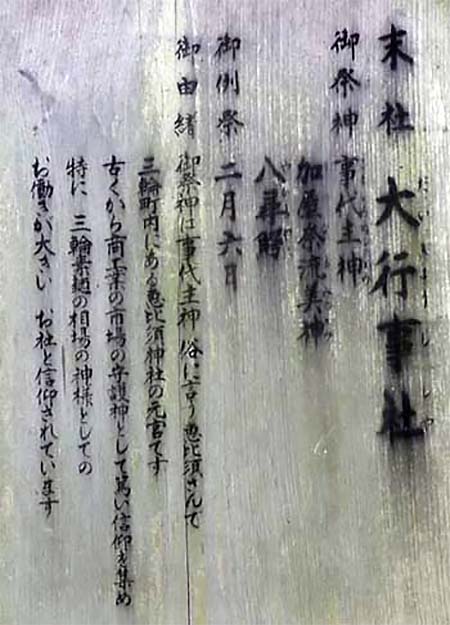 末社 大行事社
御祭神 事代主神
加屋奈流美神
八尋鰐
御例祭 二月六日
御由緒 御祭神は事代主神 俗に言う恵比須さんで
三輪町内にある恵比須神社の元宮です
古くから商工業の市場の守護神として篤い信仰を集め
特に 三輪素麺の相場の神様としての
お働きが大きい お社と信仰されています